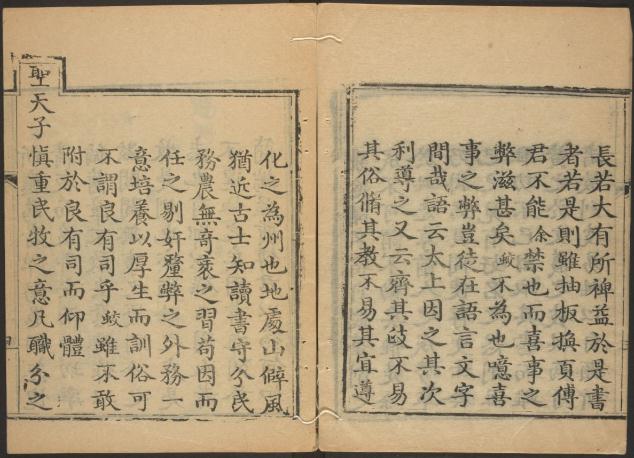 長若大有所裨益於是書
者若是則雖抽板換頁傅
君不能余禁也而喜事之
弊滋甚矣蛟不為也噫喜
事之弊豈徒在語言文字
間哉語云太上因之其次
利導之又云齊其政不易
其俗脩其教不易其宜遵
化之為州也地處山僻風
猶近古士知讀書守分民
務農無奇袤之習苟因而
任之剔奸釐弊之外務一
意培養以厚生而訓俗可
不謂良有司乎蛟雖不敢
附於良有司而仰體
聖天子慎重民牧之意凡職分之
四